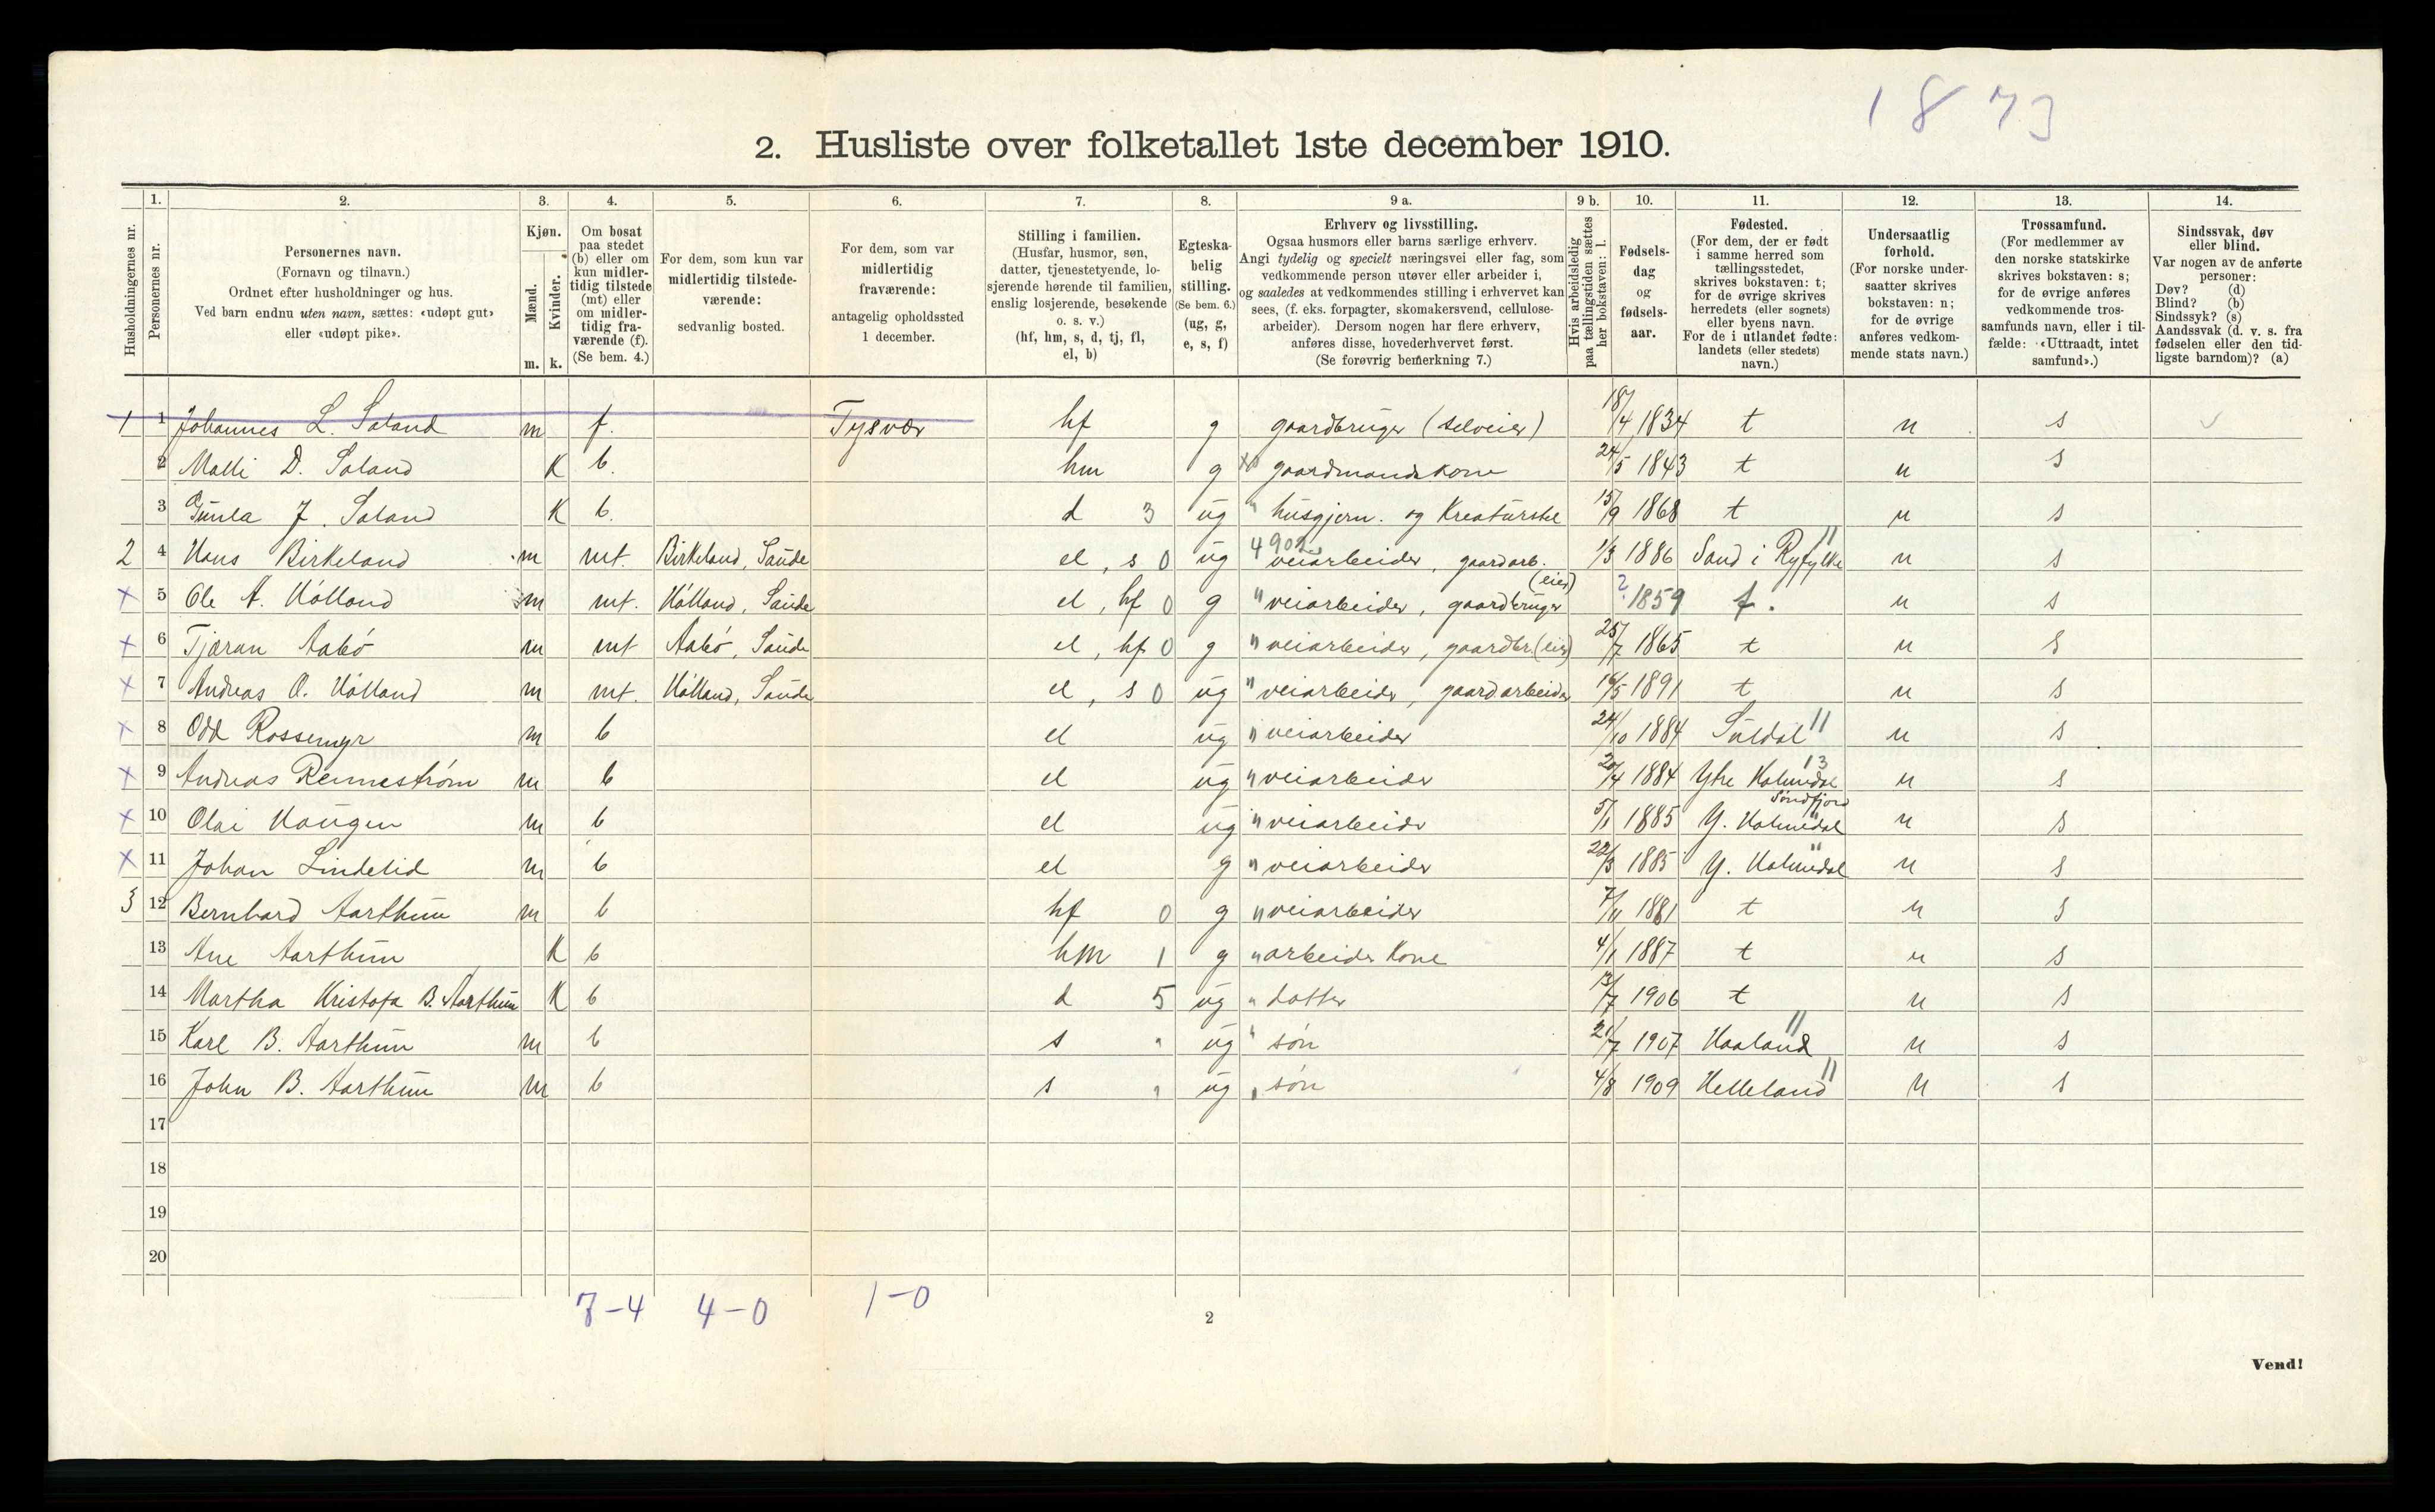 1873
2. Husliste over folketallet 1ste december 1910.
Husholdningernes nr.
1.
Personernes nr.
2.
Personernes navn.
(Fornavn og tilnavn.)
Ordnet efter husholdninger og hus.
Ved barn endnu uten navn, sættes: «udøpt gut»
eller «udøpt pike».
3.
Kjøn.
Mænd. Kvinder.
m. k.
4.
Om bosat
paa stedet
(b) eller om
kun midler-
tidig tilstede
(mt) eller
om midler-
tidig fra-
værende (f).
(Se bem. 4.)
5.
For dem, som kun var
midlertidig tilstede-
værende:
sedvanlig bosted.
6.
For dem, som var
midlertidig
fraværende:
antagelig opholdssted
1 december.
7.
Stilling i familien.
(Husfar, husmor, søn,
datter, tjenestetyende, lo-
sjerende hørende til familien,
enslig losjerende, besøkende
o. s. v.)
(hf, hm, s, d, tj, fl,
el, b)
8.
Egteska-
belig
stilling.
(Se bem. 6.)
(ug, g,
e, s, f)
9 a.
Erhverv og livsstilling.
Ogsaa husmors eller barns særlige erhverv.
Angi tydelig og specielt næringsvei eller fag, som
vedkommende person utøver eller arbeider i,
og saaledes at vedkommendes stilling i erhvervet kan
sees, (f. eks. forpagter, skomakersvend, cellulose-
arbeider). Dersom nogen har flere erhverv,
anføres disse, hovederhvervet først.
(Se forøvrig bemerkning 7.)
9 b.
Hvis arbeidsledig
paa tællingstiden sættes
her bokstaven: l.
10.
Fødsels-
dag
og
fødsels-
aar.
11.
Fødested.
(For dem, der er født
i samme herred som
tællingsstedet,
skrives bokstaven: t;
for de øvrige skrives
herredets (eller sognets)
eller byens navn.
For de i utlandet fødte:
landets (eller stedets)
navn.)
12.
Undersaatlig
forhold.
(For norske under-
saatter skrives
bokstaven: n;
for de øvrige
anføres vedkom-
mende stats navn.)
13.
Trossamfund.
(For medlemmer av
den norske statskirke
skrives bokstaven: s;
for de øvrige anføres
vedkommende tros-
samfunds navn, eller i til-
fælde: «Uttraadt, intet
samfund».)
14.
Sindssvak, døv
eller blind.
Var nogen av de anførte
personer:
Døv? (d)
Blind? (b)
Sindssyk? (s)
Aandssvak (d. v. s. fra
fødselen eller den tid-
ligste barndom)? (a)
1 1 Johannes L. Saland m f. Tysvær hf g gaardbruger (selveier) 18/4 1834 t n s
2 Malli D. Saland K b. hm g gaardmandskone 24/5 1843 t n s
3 Gunla J. Saland K b. d 3 ug " husgjern. og Kreaturstel 15/9 1868 t n s
2 4 Hans Birkeland m mt. Birkeland, Saude el, s 0 ug 4902 veiarbeider, gaardarb. 1/3 1886 Sand i Ryfylke 11 n s
x 5 Ole A. Hölland m mt. Hölland, Saude el, hf 0 g " veiarbeider, gaardbruger (eier) ? 1859 t. n s
x 6 Tjæran Aabö m mt Aabö, Saude el, hf 0 g " veiarbeider, gaardbr. (eier) 25/7 1865 t n s
x 7 Andreas O. Hölland m mt. Hölland, Saude el, s 0 ug " veiarbeider, gaardarbeider 16/5 1891 t n s
x 8 Odd Rossemyr m b el ug " veiarbeider 24/10 1884 Suldal 11 n s
x 9 Andreas Rennestrøm m b el ug " veiarbeider 20/4 1884 Ytre Holmedal 13 Søndfjord n s
x 10 Olai Haugen m b el ug " veiarbeider 5/1 1885 Y. Holmedal " n s
x 11 Johan Lindelid m b el g " veiarbeider 22/3 1885 Y. Holmedal " n s
3 12 Bernhard Aarthun m b hf 0 g " veiarbeider 7/11 1881 t n s
13 Ane Aarthun K b hm 1 g " arbeider Kone 4/1 1887 t n s
14 Martha Kristofa B. Aarthun K b d 5 ug " datter 13/7 1906 t n s
15 Karl B. Aarthun m b s " ug " søn 21/7 1907 Haaland 11 n s
16 John B. Aarthun m b s " ug " søn 4/8 1909 Helleland 11 n s
17
18
19
20
7-4 4-0 1-0
2
Vend!